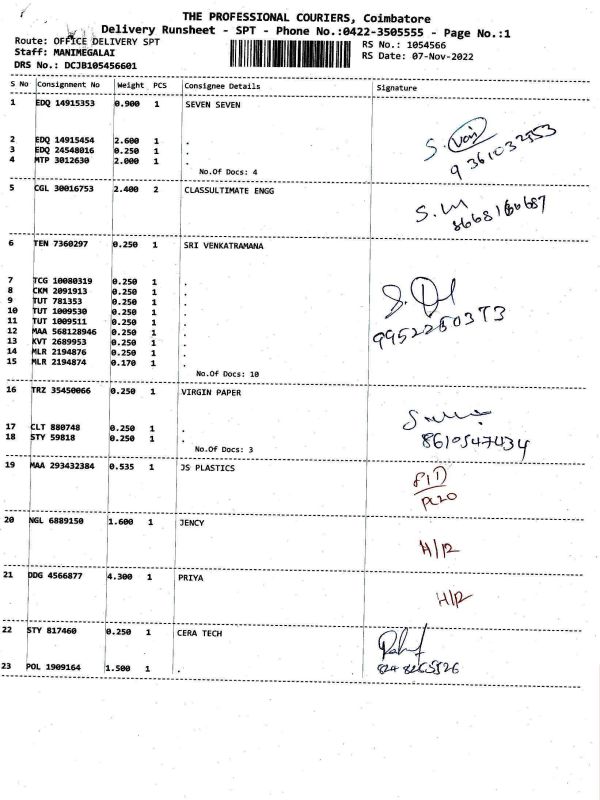 THE PROFESSIONAL COURIERS, Coimbatore
Delivery Runsheet - SPT - Phone No.:0422-3505555 - Page No.:1
Route: OFFICE DELIVERY SPT
Staff: MANIMEGALAI
DRS No.: DCJB105456601
RS No.: 1054566
RS Date: 07-Nov-2022
S No Consignment No Weight PCS Consignee Details Signature
1 EDQ 14915353 0.900 1 SEVEN SEVEN
2 EDQ 14915454 2.600 1 .
3 EDQ 24548016 0.250 1 .
4 MTP 3012630 2.000 1 .
No.Of Docs: 4
9361032553
5 CGL 30016753 2.400 2 CLASSULTIMATE ENGG
S.M
6 TEN 7360297 0.250 1 SRI VENKATRAMANA
7 TCG 10080319 0.250 1 .
8 CKM 2091913 0.250 1 .
9 TUT 781353 0.250 1 .
10 TUT 1009530 0.250 1 .
11 TUT 1009511 0.250 1 .
12 MAA 568128946 0.250 1 .
13 KVT 2689953 0.250 1 .
14 MLR 2194876 0.250 1 .
15 MLR 2194874 0.170 1 .
No.Of Docs: 10
9952260373
16 TRZ 35450066 0.250 1 VIRGIN PAPER
17 CLT 880748 0.250 1 .
18 STY 59818 0.250 1 .
No.Of Docs: 3
8610547434
19 MAA 293432384 0.535 1 JS PLASTICS
20 NGL 6889150 1.600 1 JENCY
H/R
21 DDG 4566877 4.300 1 PRIYA
H/R
22 STY 817460 0.250 1 CERA TECH
23 POL 1909164 1.500 1 .